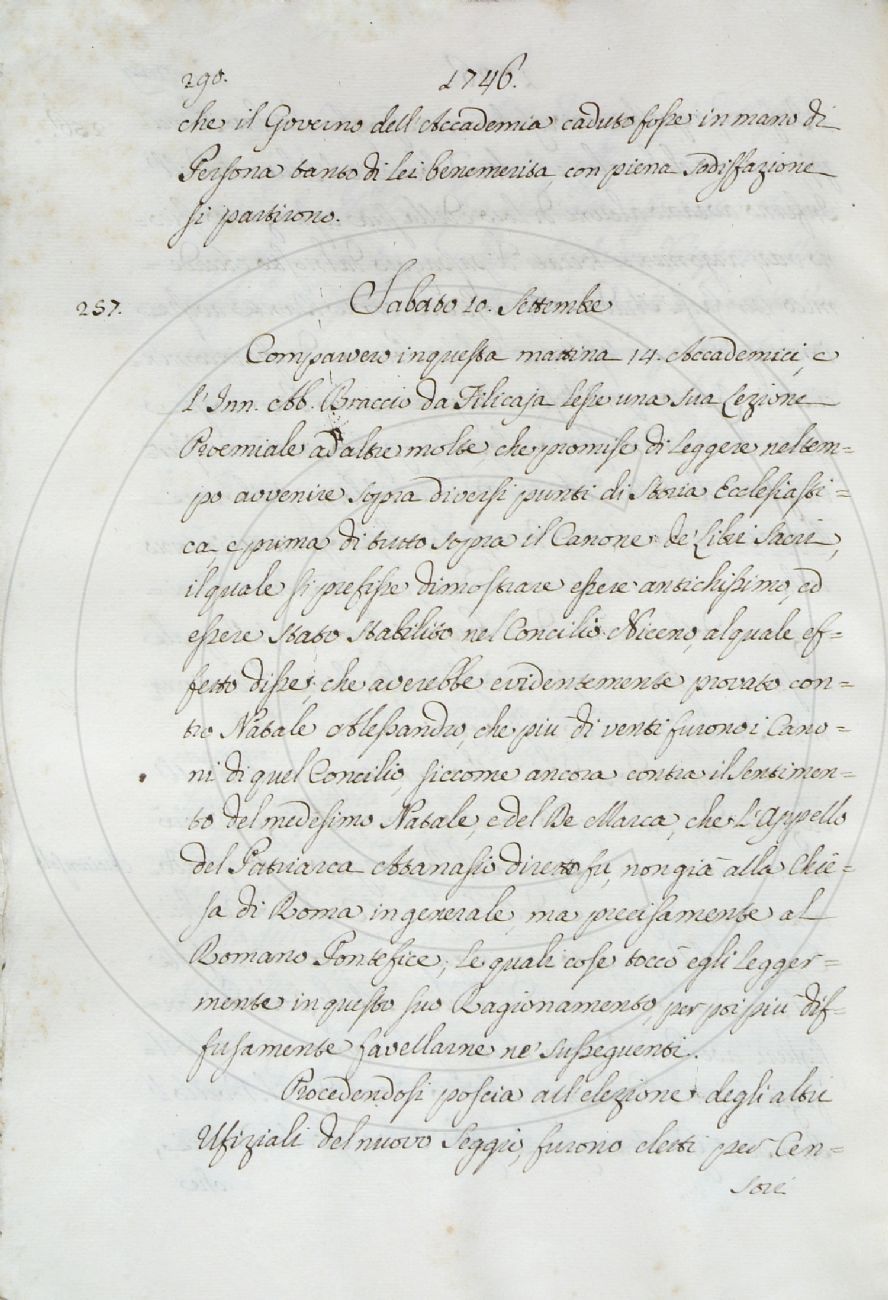 290.
1746.
che il Governo dell'Accademia caduto fosse in mano di
Persona tanto di lei benemerita, con piena sodisfazione
si partirono.
257.
Sabato 10. Settembre
Comparvero in questa mattina 14. Accademici, e
l'Inn. Ab. Braccio da Filicaja lesse una sua Lezione
Proemiale ad altre molte, che promise di leggere nel tem=
po avvenire sopra diversi punti di Storia Ecclesiasti=
ca, e prima di tutto sopra il Canone de' Libri Sacri,
il quale si prefisse dimostrare essere antichissimo, ed
essere stato stabilito nel Concilio Niceno, al quale ef=
fetto disse, che averebbe evidentemente provato con=
tro Natale Alessandro, che più di venti furono i Cano=
ni di quel Concilio, siccome ancora contra il sentimen=
to del medesimo Natale, e del De Marca, che l'Appello
del Patriarca Atanasio diretto fu, non già alla Chie=
sa di Roma in generale, ma precisamente al
Romano Pontefice; le quali cose toccò egli legger=
mente in questo suo Ragionamento, per poi più dif=
fusamente favellarne ne' susseguenti.
Procedendosi poscia all'elezione degli altri
Ufiziali del nuovo Seggio, furono eletti per Cen=
sori